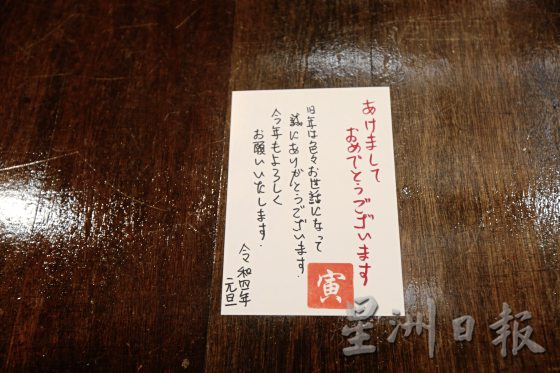 あけまして
おめでとうございます
旧年は色々お世話になって
誠にありがとうございます.
今年もよろしく
お願いいたします.
令和四年
元旦
寅
星洲日报